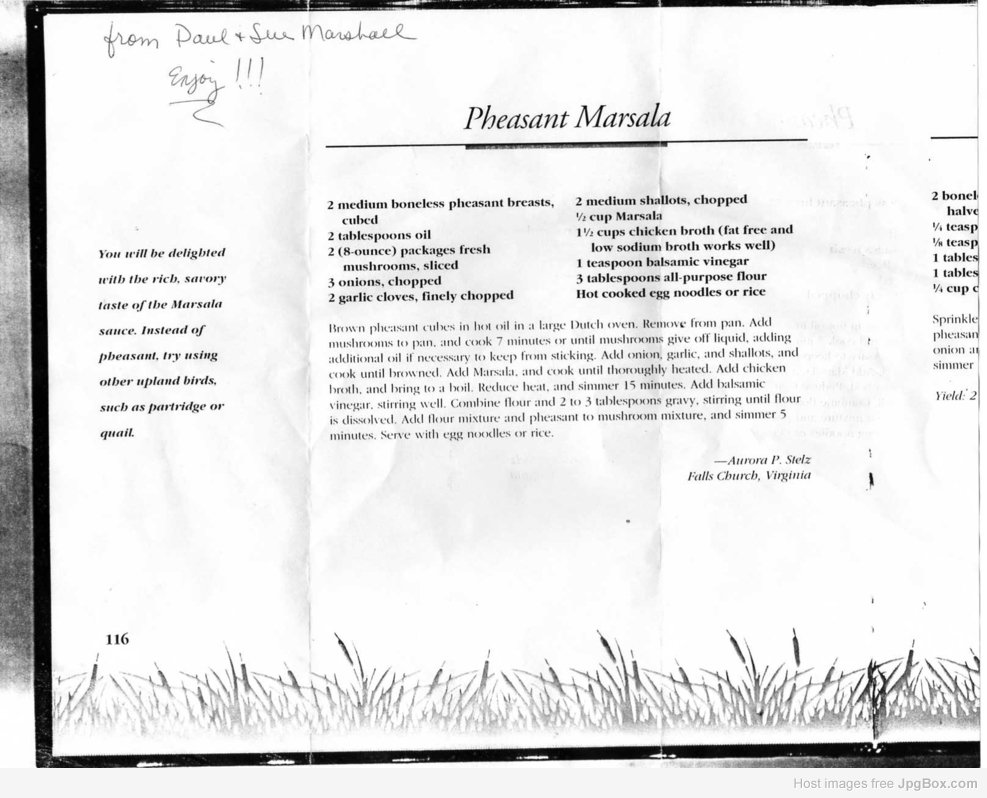 from Paul + Sue Marshall
Enjoy !!!
Pheasant Marsala
2 medium boneless pheasant breasts,
cubed
2 tablespoons oil
2 (8-ounce) packages fresh
mushrooms, sliced
3 onions, chopped
2 garlic cloves, finely chopped
2 medium shallots, chopped
½ cup Marsala
1½ cups chicken broth (fat free and
low sodium broth works well)
1 teaspoon balsamic vinegar
3 tablespoons all-purpose flour
Hot cooked egg noodles or rice
You will be delighted
with the rich, savory
taste of the Marsala
sauce. Instead of
pheasant, try using
other upland birds,
such as partridge or
quail.
Brown pheasant cubes in hot oil in a large Dutch oven. Remove from pan. Add
mushrooms to pan, and cook 7 minutes or until mushrooms give off liquid, adding
additional oil if necessary to keep from sticking. Add onion, garlic, and shallots, and
cook until browned. Add Marsala, and cook until thoroughly heated. Add chicken
broth, and bring to a boil. Reduce heat, and simmer 15 minutes. Add balsamic
vinegar, stirring well. Combine flour and 2 to 3 tablespoons gravy, stirring until flour
is dissolved. Add flour mixture and pheasant to mushroom mixture, and simmer 5
minutes. Serve with egg noodles or rice.
—Aurora P. Stelz
Falls Church, Virginia
116
2 bonel
halve
¼ teasp
⅛ teasp
1 tables
1 tables
¼ cup c
Sprinkle
pheasan
onion an
simmer
Yield: 2
Host images free JpgBox.com